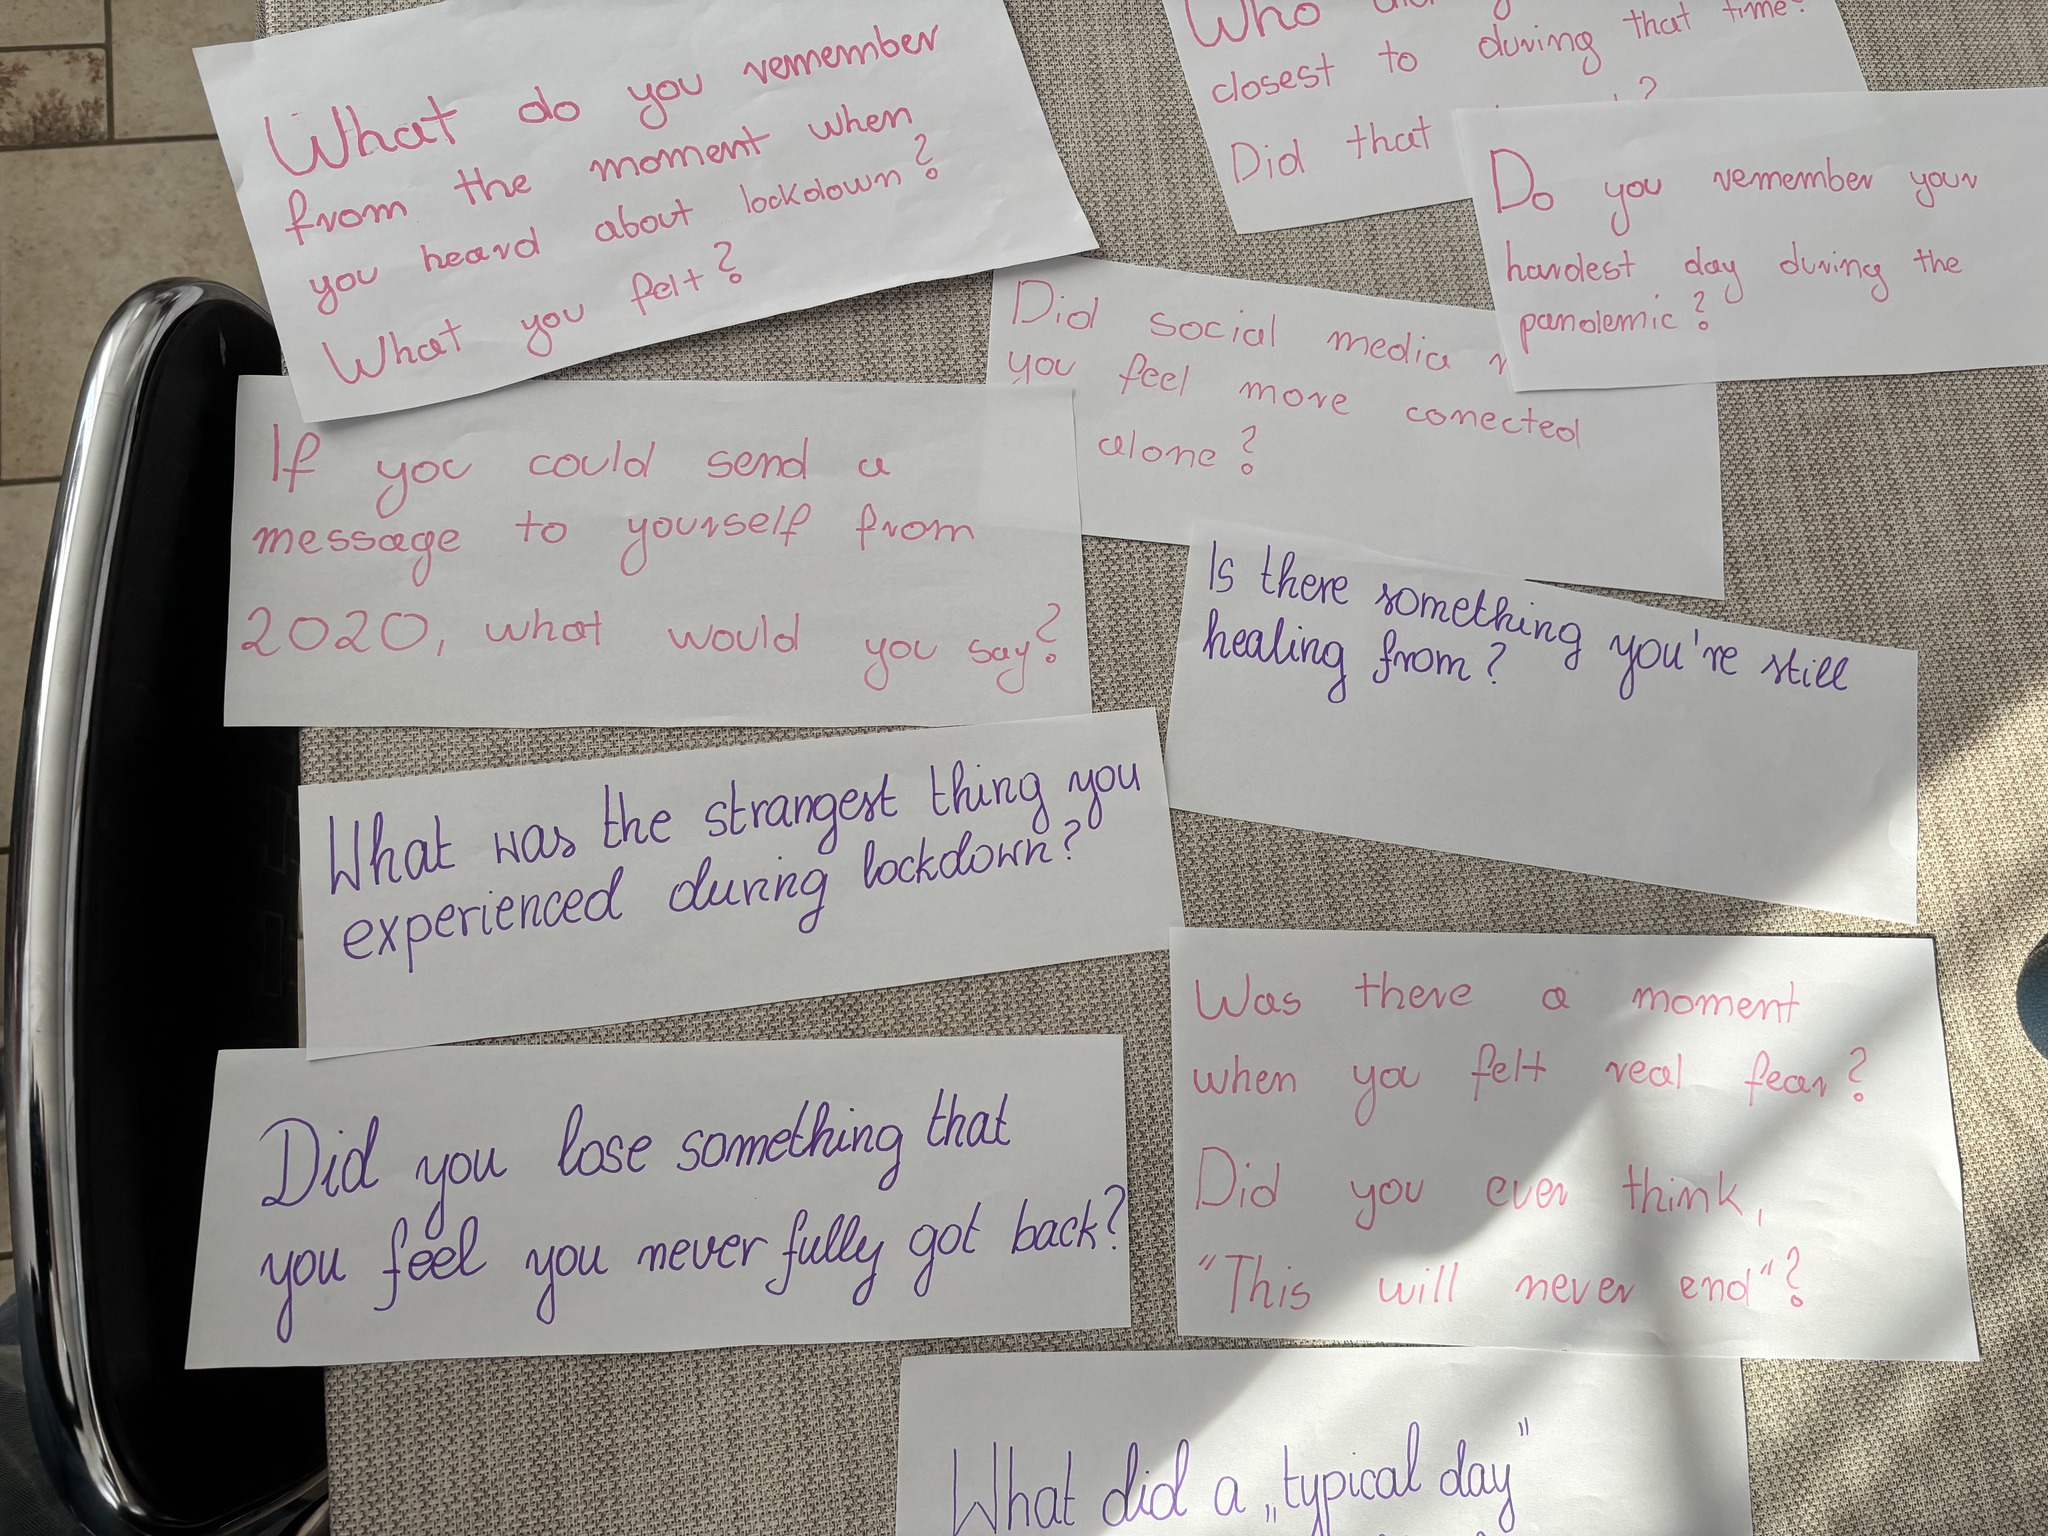 What do you remember
from the moment when
you heard about lockdown?
What you felt?
Who
closest to during that time?
Did that
Do you remember your
hardest day during the
pandemic?
Did social media
you feel more conected
alone?
If you could send a
message to yourself from
2020, what would you say?
Is there something you're still
healing from?
What was the strangest thing you
experienced during lockdown?
Did you lose something that
you feel you never fully got back?
Was there a moment
when you felt real fear?
Did you ever think,
"This will never end"?
What did a „typical day"